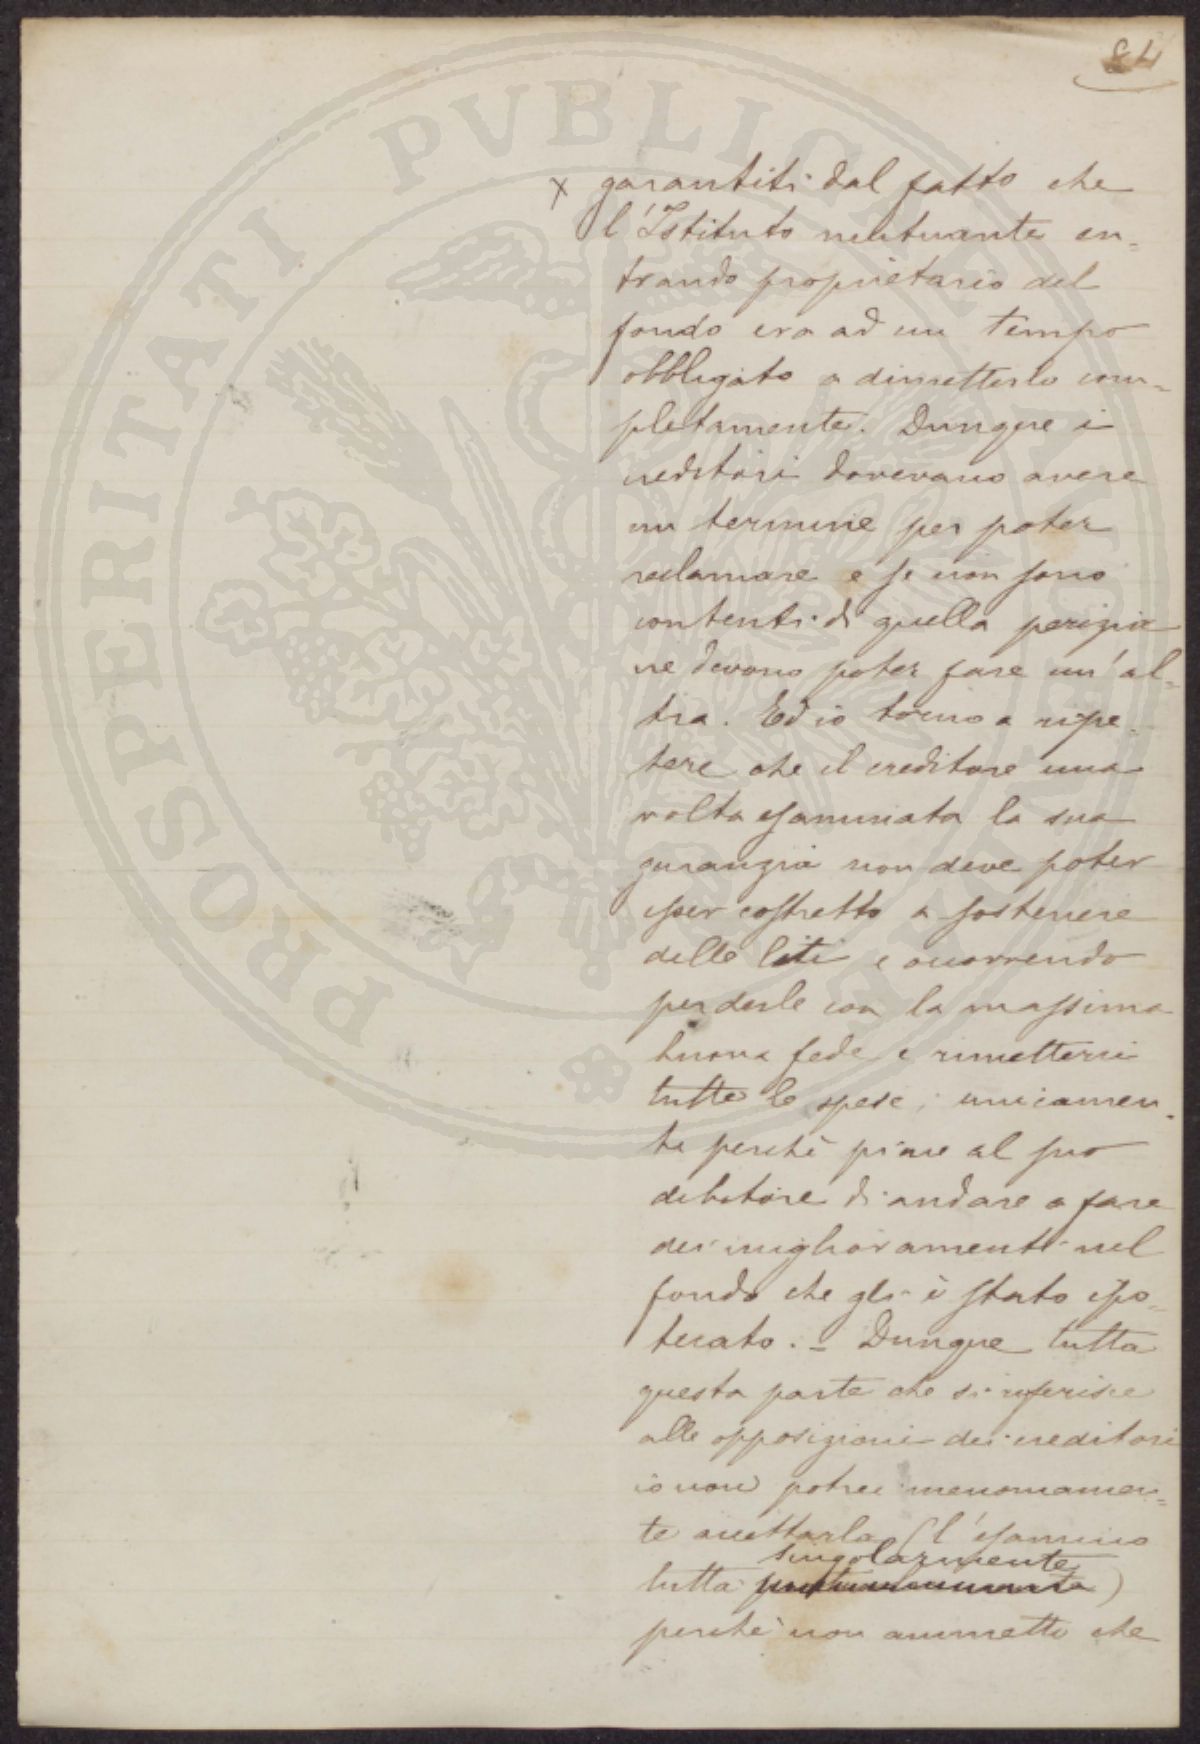 84
x garantiti dal fatto che
l'Istituto mutuante en=
trando proprietario del
fondo era ad un tempo
obbligato a dimetterlo com=
pletamente. Dunque i
creditori dovevano avere
un termine per poter
reclamare e se non sono
contenti di quella perizia
ne devono poter fare un'al=
tra. Ed io torno a ripe=
tere che il creditore una
volta esaminata la sua
garanzia non deve poter
esser costretto a sostenere
delle liti e occorrendo
perderle con la massima
buona fede e rimetterci
tutte le spese; unicamen=
te perchè piace al suo
debitore di andare a fare
dei miglioramenti nel
fondo che gli è stato ipo=
tecato. - Dunque tutta
questa parte che si riferisce
alle opposizioni dei creditori
io non potrei menomamen=
te accettarla (l'esamino
singolarmente
tutta )
perchè non ammetto che
PROSPERITATI PVBLICAE